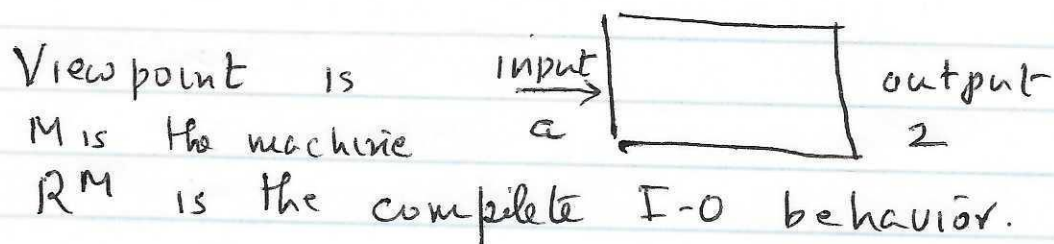 Viewpoint is input output
M is the machine a 2
R^M is the complete I-O behavior.